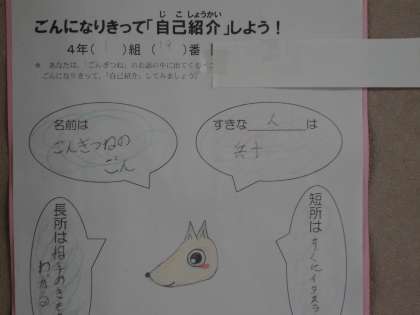 じこ しょうかい
ごんになりきって「自己紹介」しよう！
4年( )組( )番
* あなたは、「ごんぎつね」のお話の中に出てくる
ごんになりきって、「自己紹介」してみましょう。
名前は
ごんぎつねの
ごん
すきな 人 は
兵十
長所は
わかる
短所は すぐにイタズラ